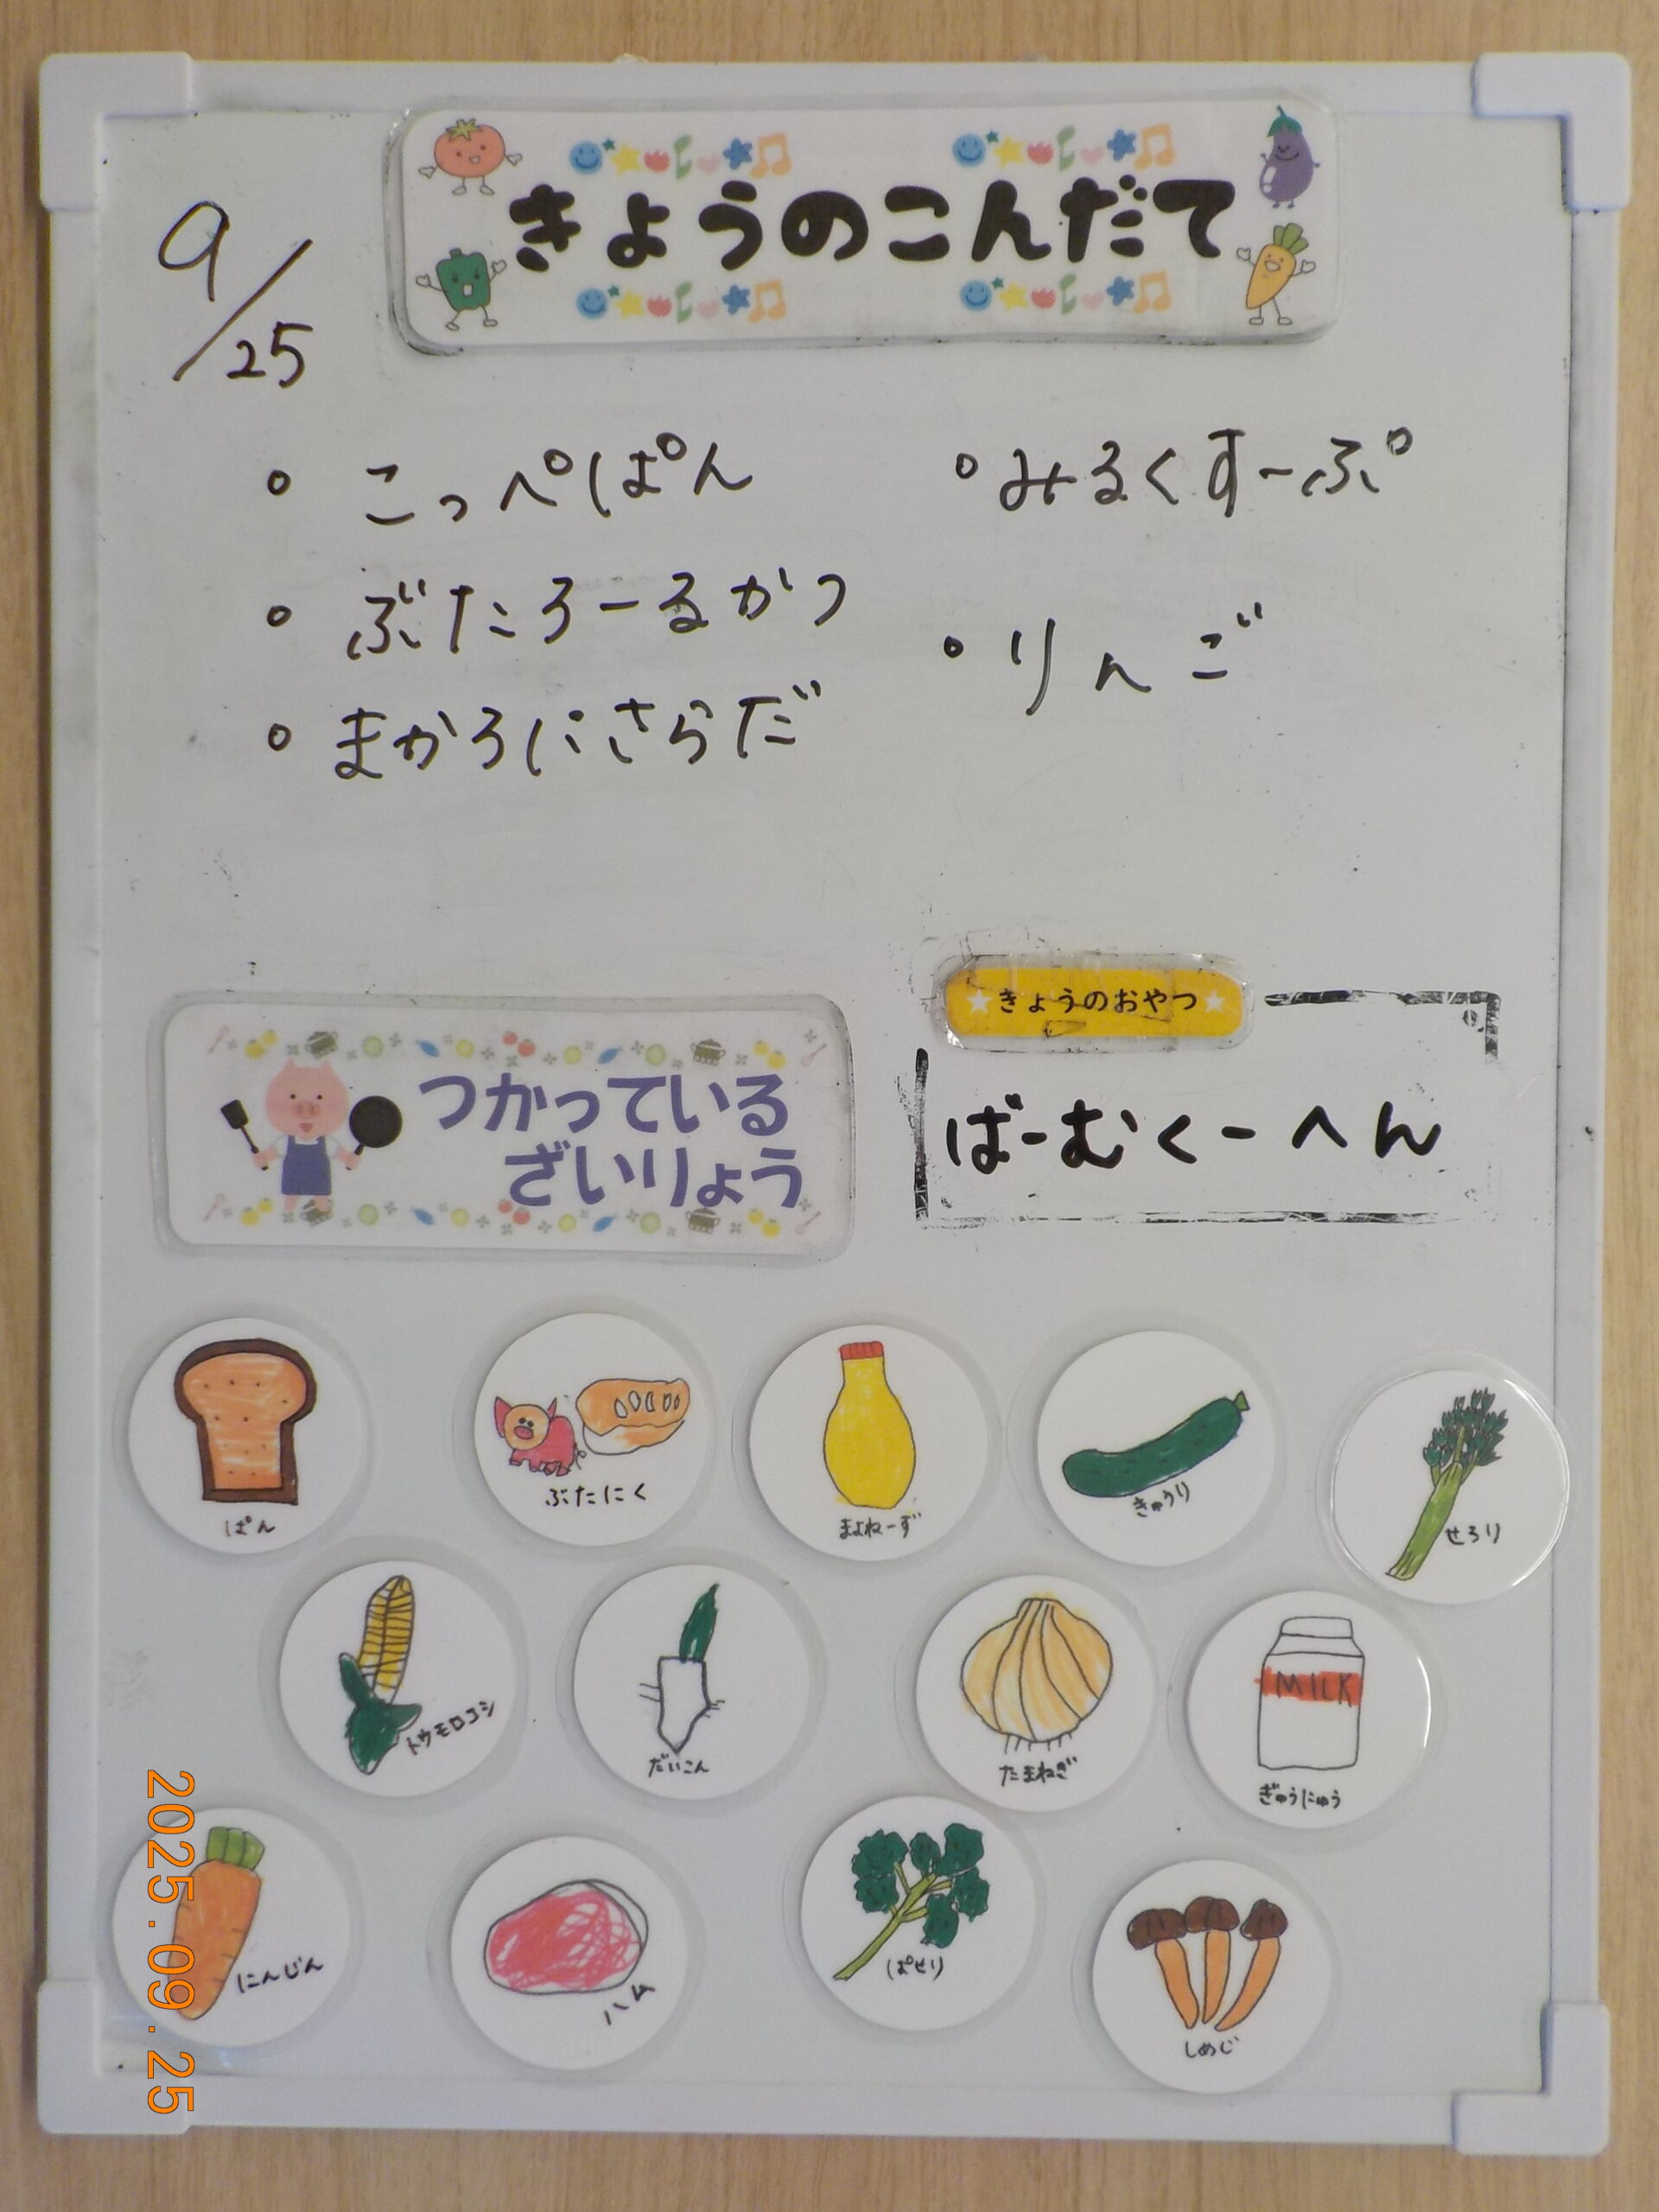 きょうのこんだて
9/25
• こっぺぱん
• ぶたろーるかつ
• まかろにさらだ
• みるくすーぷ
• りんご
★きょうのおやつ★
ばーむくーへん
つかっている
ざいりょう
ぱん
ぶたにく
まよねーず
きゅうり
せろり
トウモロコシ
だいこん
たまねぎ
MILK
ぎゅうにゅう
にんじん
ハム
ぱせり
しめじ
2025.09.25